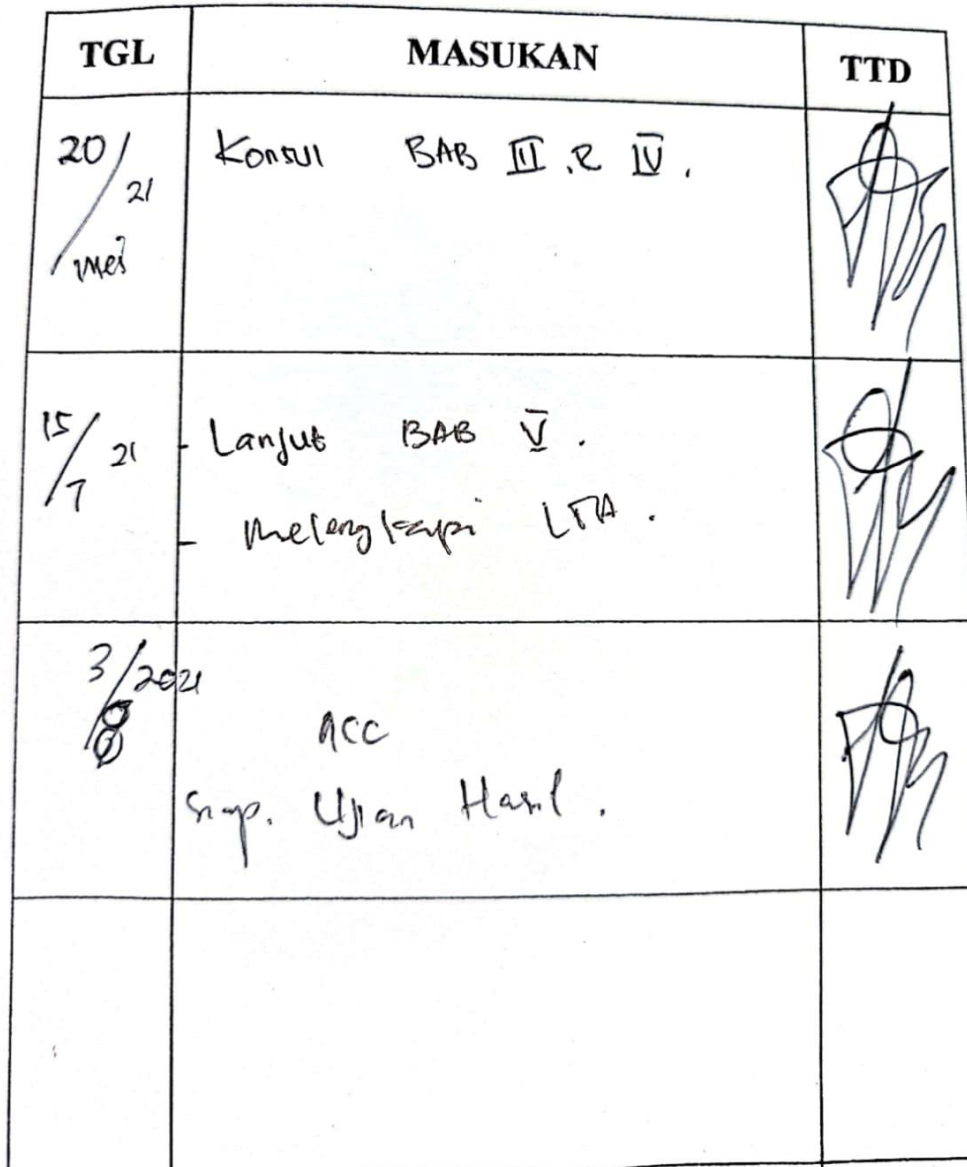 TGL MASUKAN TTD
20/mei 21 Konsul BAB III & IV.
15/7 21 - Lanjut BAB V.
- Melengkapi LTA.
3/8 2021
ACC
Siap. Ujian Hasil.